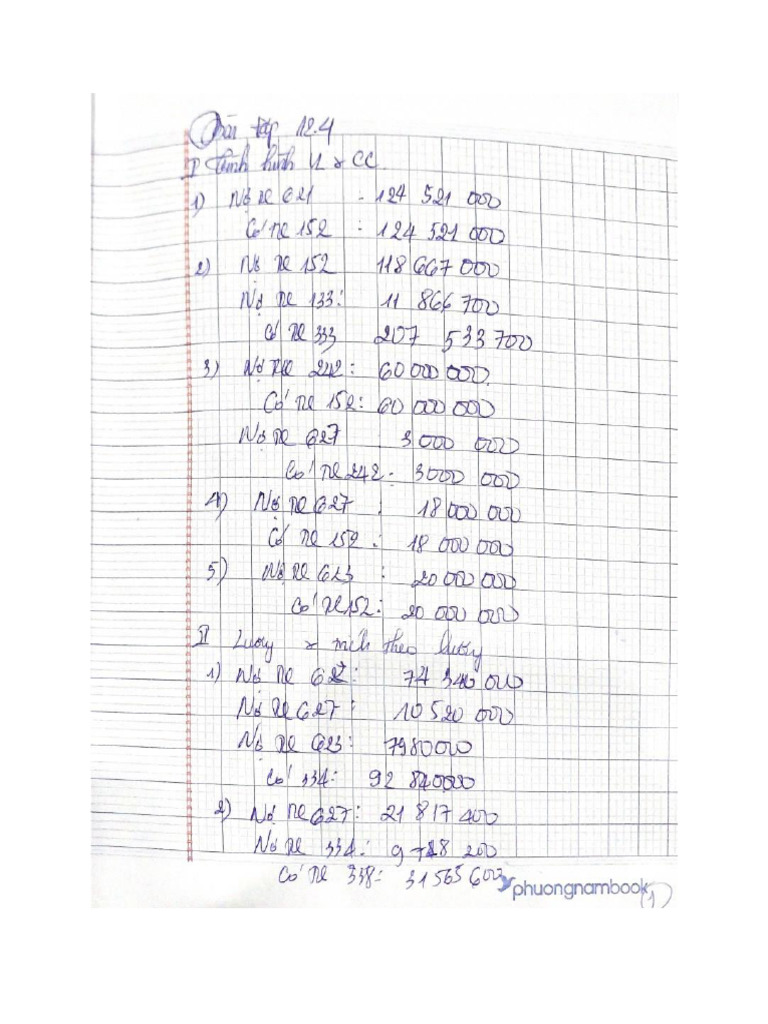 Bài tập 12.4
I Tình hình VL & CC.
1) Nợ TK 621 : 124 521 000
Có TK 152 : 124 521 000
2) Nợ TK 152 118 667 000
Nợ TK 133: 11 866 700
Có TK 333 207 533 700
3) Nợ TK 242: 60 000 000.
Có TK 152: 60 000 000
Nợ TK 627 : 3 000 000
Có TK 242: 3000 000
4) Nợ TK 627 : 18 000 000
Có TK 152 : 18 000 000
5) Nợ TK 623 : 20 000 000
Có TK 152: 20 000 000
II Lương & trích theo lương
1) Nợ TK 622: 74 340 000
Nợ TK 627: 10 520 000
Nợ TK 623: 7980000
Có 334: 92 840000
2) Nợ TK 627: 21 817 400
Nợ TK 334: 9 748 200
Có TK 338: 31 565 600
phuongnambook
1